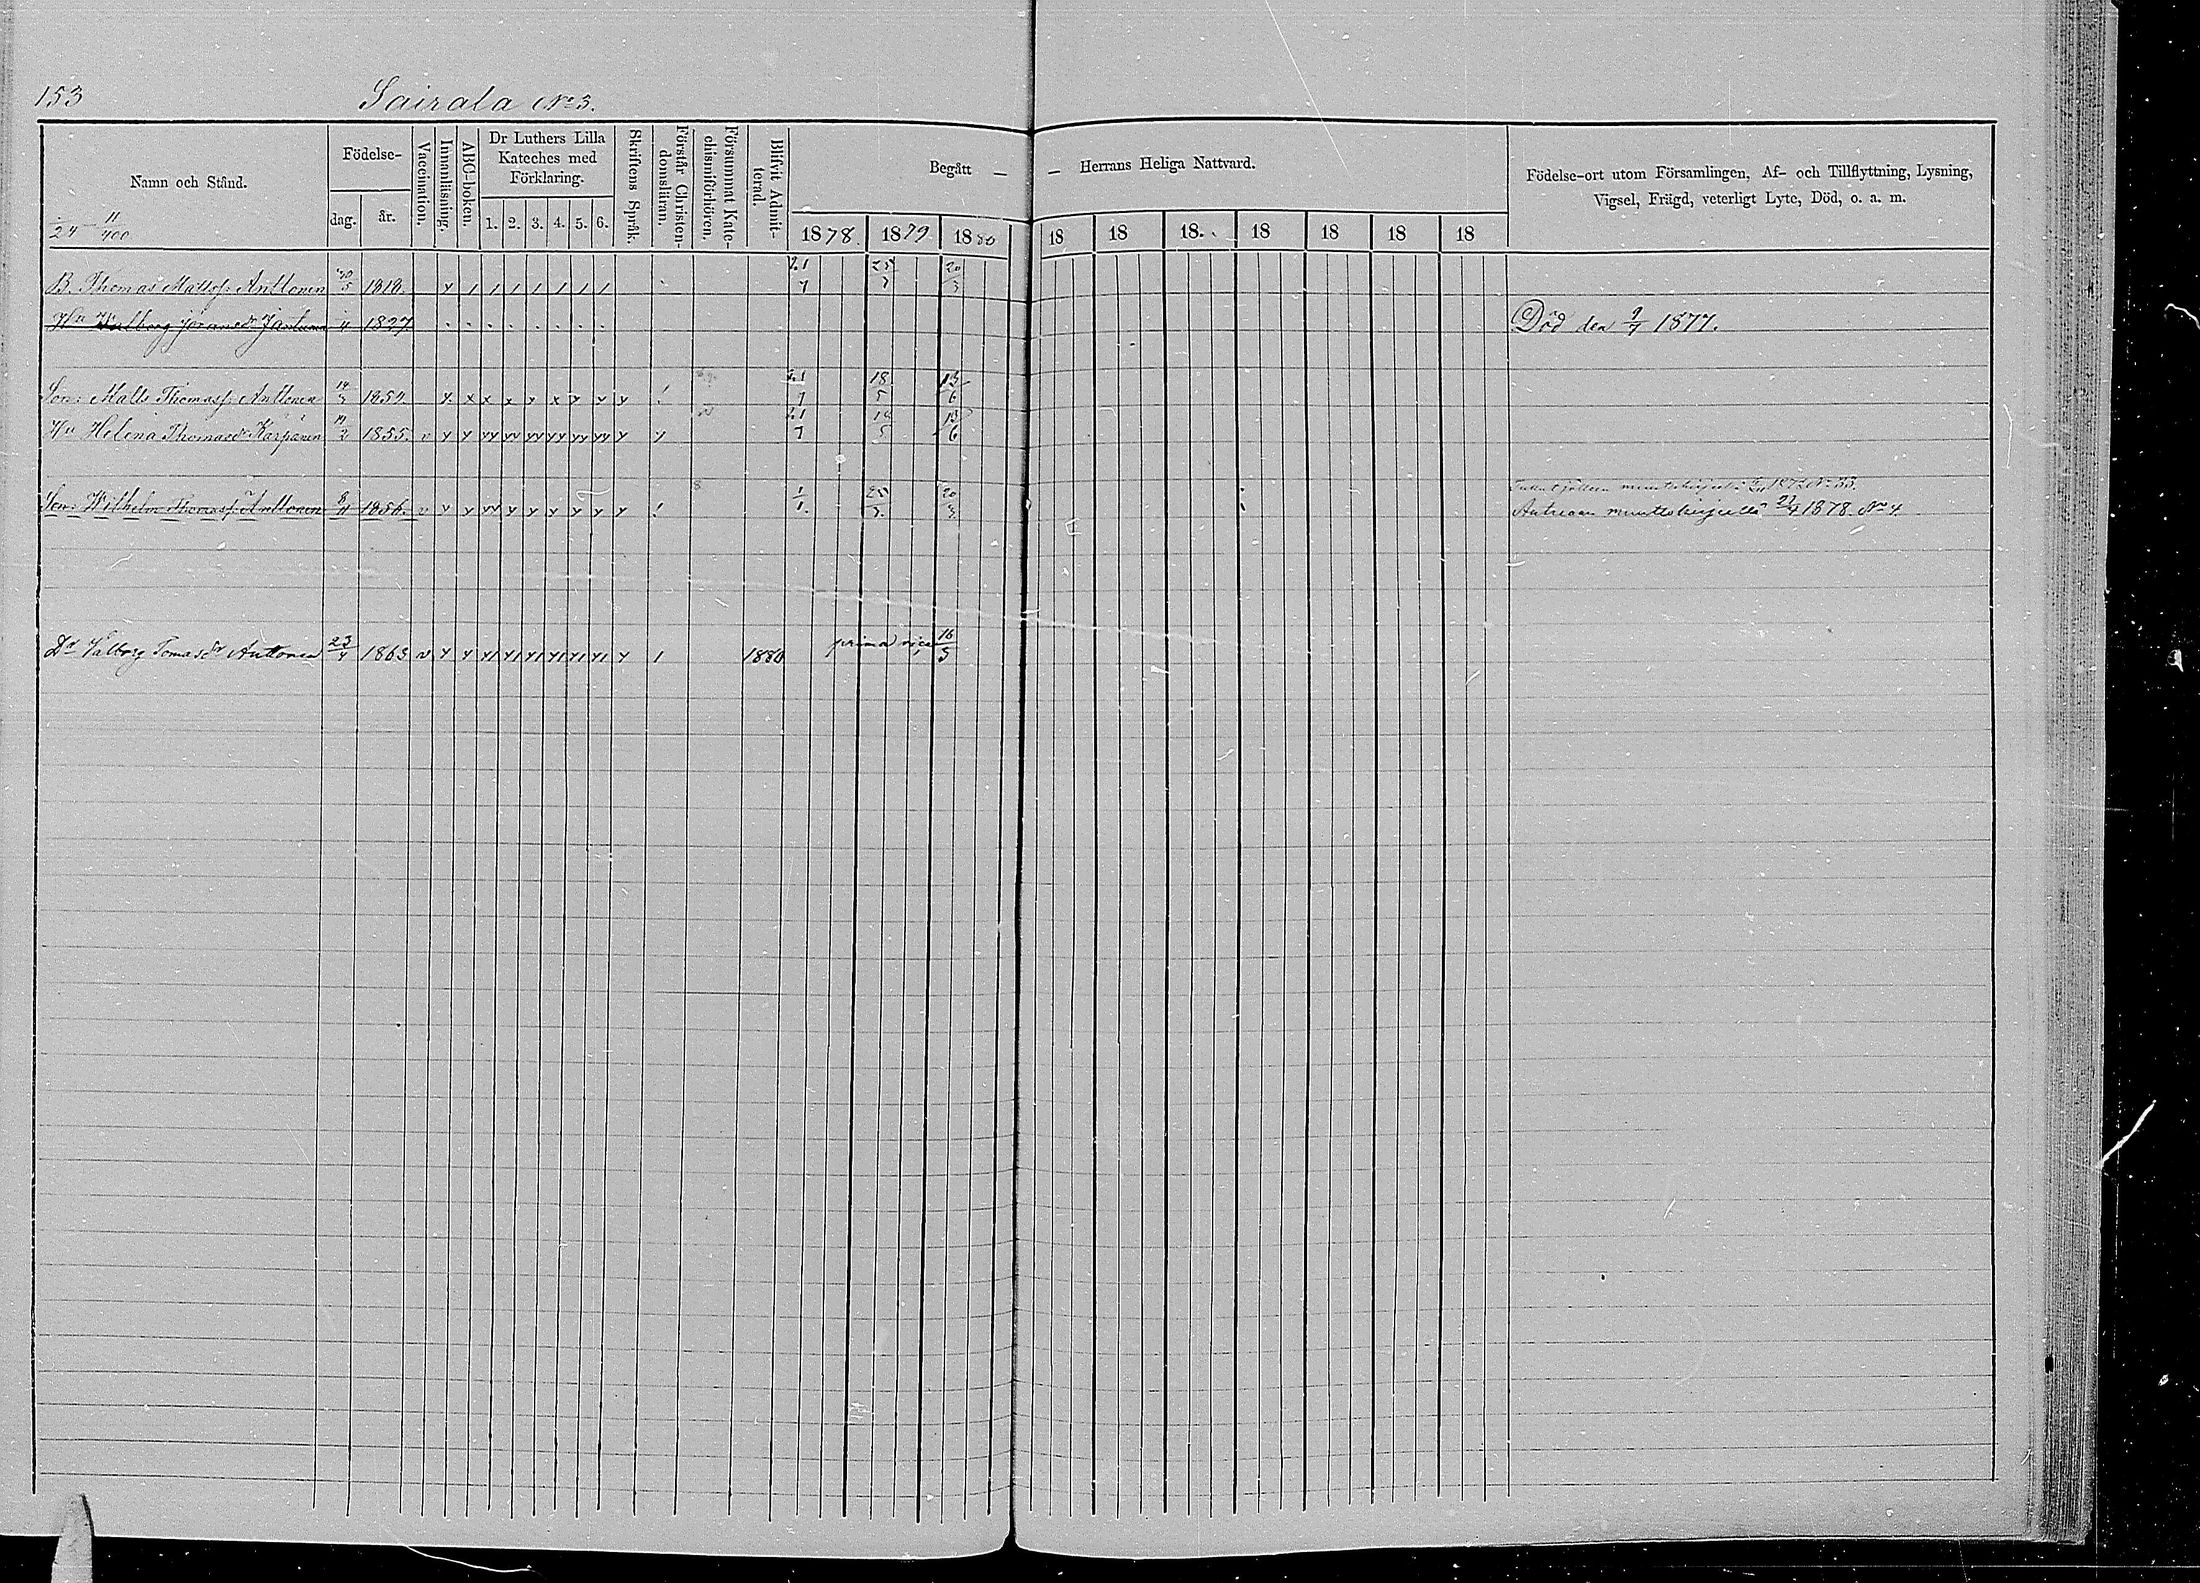 153 Sairala No 3.
Namn och Stånd.
11
24 400
Födelse-
dag. år.
Vaccination.
Innanläsning.
ABC-boken.
Dr Luthers Lilla
Kateches med
Förklaring.
1. 2. 3. 4. 5. 6.
Skriftens Språk.
Förstår Christen-
domsläran.
Försummat Kate-
chismiförhören.
Blifvit Admit-
terad.
Begått — — Herrans Heliga Nattvard.
1878. 1879 1880 18 18 18 18 18 18 18
Födelse-ort utom Församlingen, Af- och Tillflyttning, Lysning,
Vigsel, Frägd, veterligt Lyte, Död, o. a. m.
B. Thomas Matts. Anttonen 30/5 1818. 21/7 25/7 20/3
Hu Walborg Jöransdr 4 1827. Död den 9/7 1877.
Son: Matts Thomass. Anttonen 14/3 1854. 21/7 18/5 13/6
Hu Helena Thomasdr Karpanen 19/2 1855. v 21/7 18/5 13/6
Son: Wilhelm Thomass. Anttonen 8/4 1856. v 1/1. 25/3. 20/3. 187 No 33.
Antrean muuttokirjalla 21/4 1878 No 4.
Dr Valborg Tomasdr Anttonen 23/4 1863 v 1880 prima vice 16/5